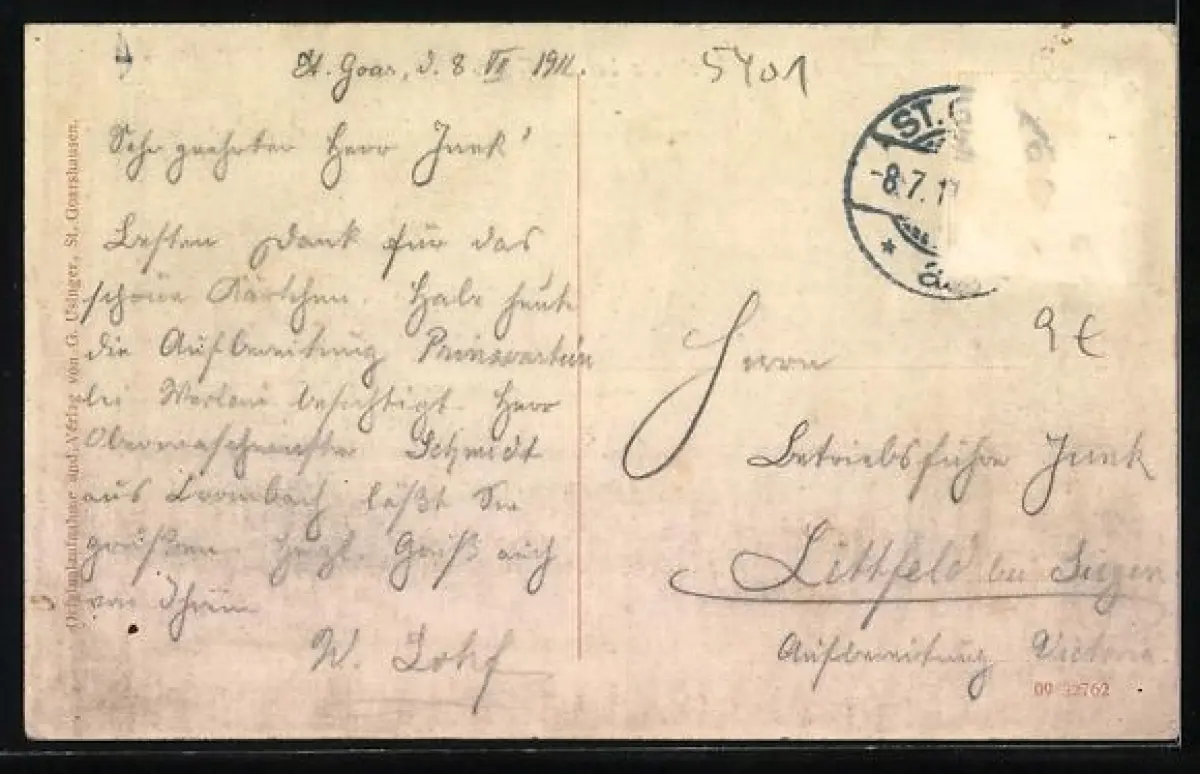 St. Goar, d. 8 VII 1911.
Sehr geehrter Herr Junk!
Besten Dank für das
schöne Kärtchen. Habe heute
die Aufbereitung Prinzenstein
bei Werlau besichtigt. Herr
Schmidt
aus Crombach läßt Sie
grüßen. Herzl. Gruß auch
von Ihrem
W.
Originalaufnahme und Verlag von G. Usinger, St. Goarshausen.
5401
ST. G
-8.7.11
9 €
Herrn
Betriebsführer Junk
Littfeld bei Siegen
Aufbereitung Victoria.
09 32762